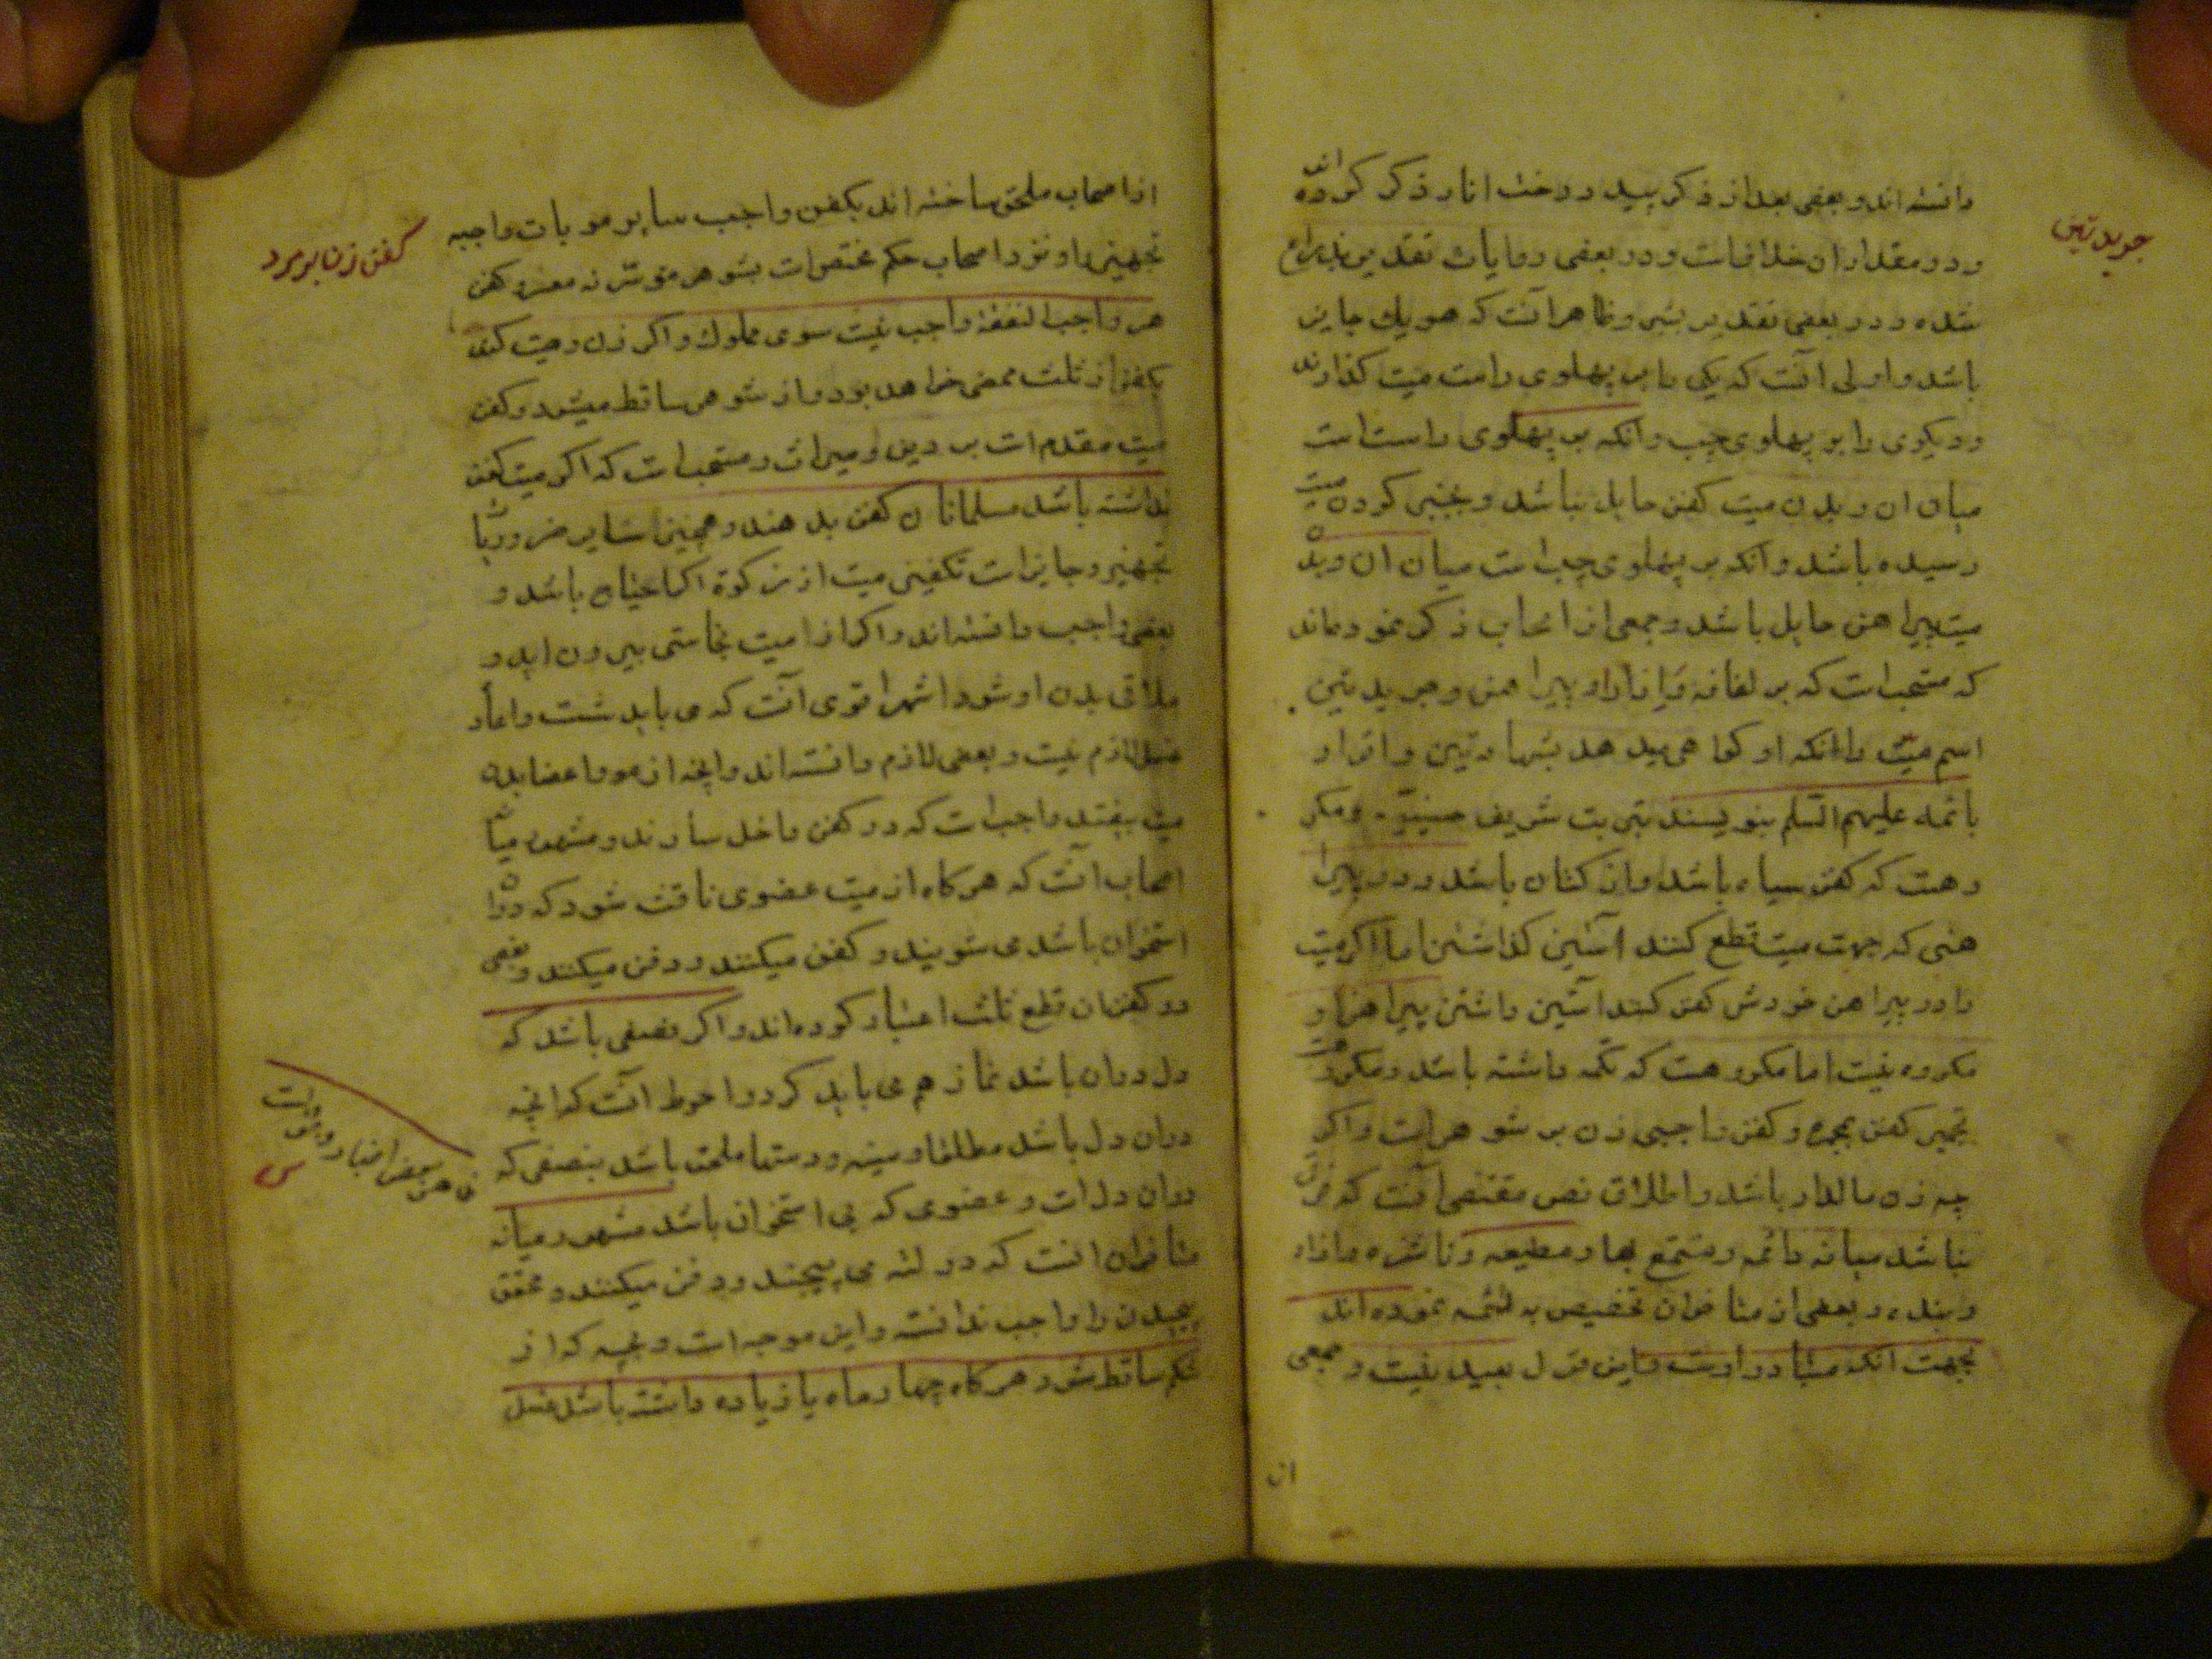 جریدتین
دانسته اند و بعضی بعد از ذکر بید درخت انار ذکر کرده اند
و در مقدار ان خلافست و در بعضی روایات تقدیر بذراع
شده و در بعضی تقدیر بشبر و ظاهر آنست که هر یك جایز
باشد و اولی آنست که یکی را بر پهلوی راست میت گذارند
و دیگری را بر پهلوی چپ و آنکه بر پهلوی راست است
میان ان و بدن میت کفن حایل نباشد و بچنبر گردن میت
رسیده باشد و آنکه بر پهلوی چپ است میان ان و بدن
میت پیراهن حایل باشد و جمعی از اصحاب ذکر نموده اند
که مستحب است که بر لفافه و ازار و پیراهن و جریدتین
اسم میت و انکه او کواهی میدهد بشهادتین و اقرار
بائمه علیهم السلم بنویسند بتربت شریف حسینیه و مکر
وهست که کفن سیاه باشد و از کتان باشد و در پیرا
هنی که جهت میت قطع کنند آستین گذاشتن اما اگر میت
را در پیراهن خودش کفن کنند آستین داشتن پیراهن او
مکروه نیست اما مکروهست که تکمه داشته باشد و مکروهست
تجمیر کفن بمجمره و کفن واجبی زن بر شوهر است و اگر
چه زن مالدار باشد و اطلاق نص مقتضی آنست که فرق
نباشد میانه دائمه و متمتع بها و مطیعه و ناشزه و ازاد
و بنده و بعضی از متاخران تخصیص به دائمه نموده اند
بجهت انکه متبادر اوست و این قول بعید نیست و جمعی
از
از اصحاب ملحق ساخته اند بکفن واجب سایر موبات واجبه
تجهیز را و نزد اصحاب حکم مختص است بشوهر موسر نه معسر و کفن
کفن زن بر مرد
هر واجب النفقه واجب نیست سوی مملوك و اگر زن وصیت کند
بکفن از ثلث ممضی خواهد بود و از شوهر ساقط میشود و کفن
میت مقدم است بر دین و میراث و مستحب است که اگر میت کفن
نداشته باشد مسلمانان کفن بدهند و همچنین سایر ضروریات
تجهیز و جایز است تکفین میت از زکوة اگر احتیاج باشد و
بعضی واجب دانسته اند و اگر از میت نجاستی بیرون اید و
ملاقی بدن او شود اشهر اقوی آنست که می باید شست و اعاد
غسل لازم نیست و بعضی لازم دانسته اند و انچه از مو و اعضا بدن
میت بیفتد واجب است که در کفن داخل سازند و مشهور میان
اصحاب آنست که هرگاه از میت عضوی یافت شود که دران
استخوان باشد می شویند و کفن میکنند و دفن میکنند و بعضی
در کفن ان قطع ثلث اعتبار کرده اند و اگر نصفی باشد که
دل دران باشد نماز هم می باید کرد و احوط آنست که انچه
دران دل باشد مطلقا و سینه و دستها ملحق باشد بنصفی که
دران دل است و عضوی که بی استخوان باشد مشهور میانه
متاخران انست که در لته می پیچند و دفن میکنند و محقق
پیچیدن را واجب ندانسته و این موجه است و بچه که از
شکم ساقط شود هرگاه چهار ماه یا زیاده داشته باشد غسل
ظاهر بعض اخبار